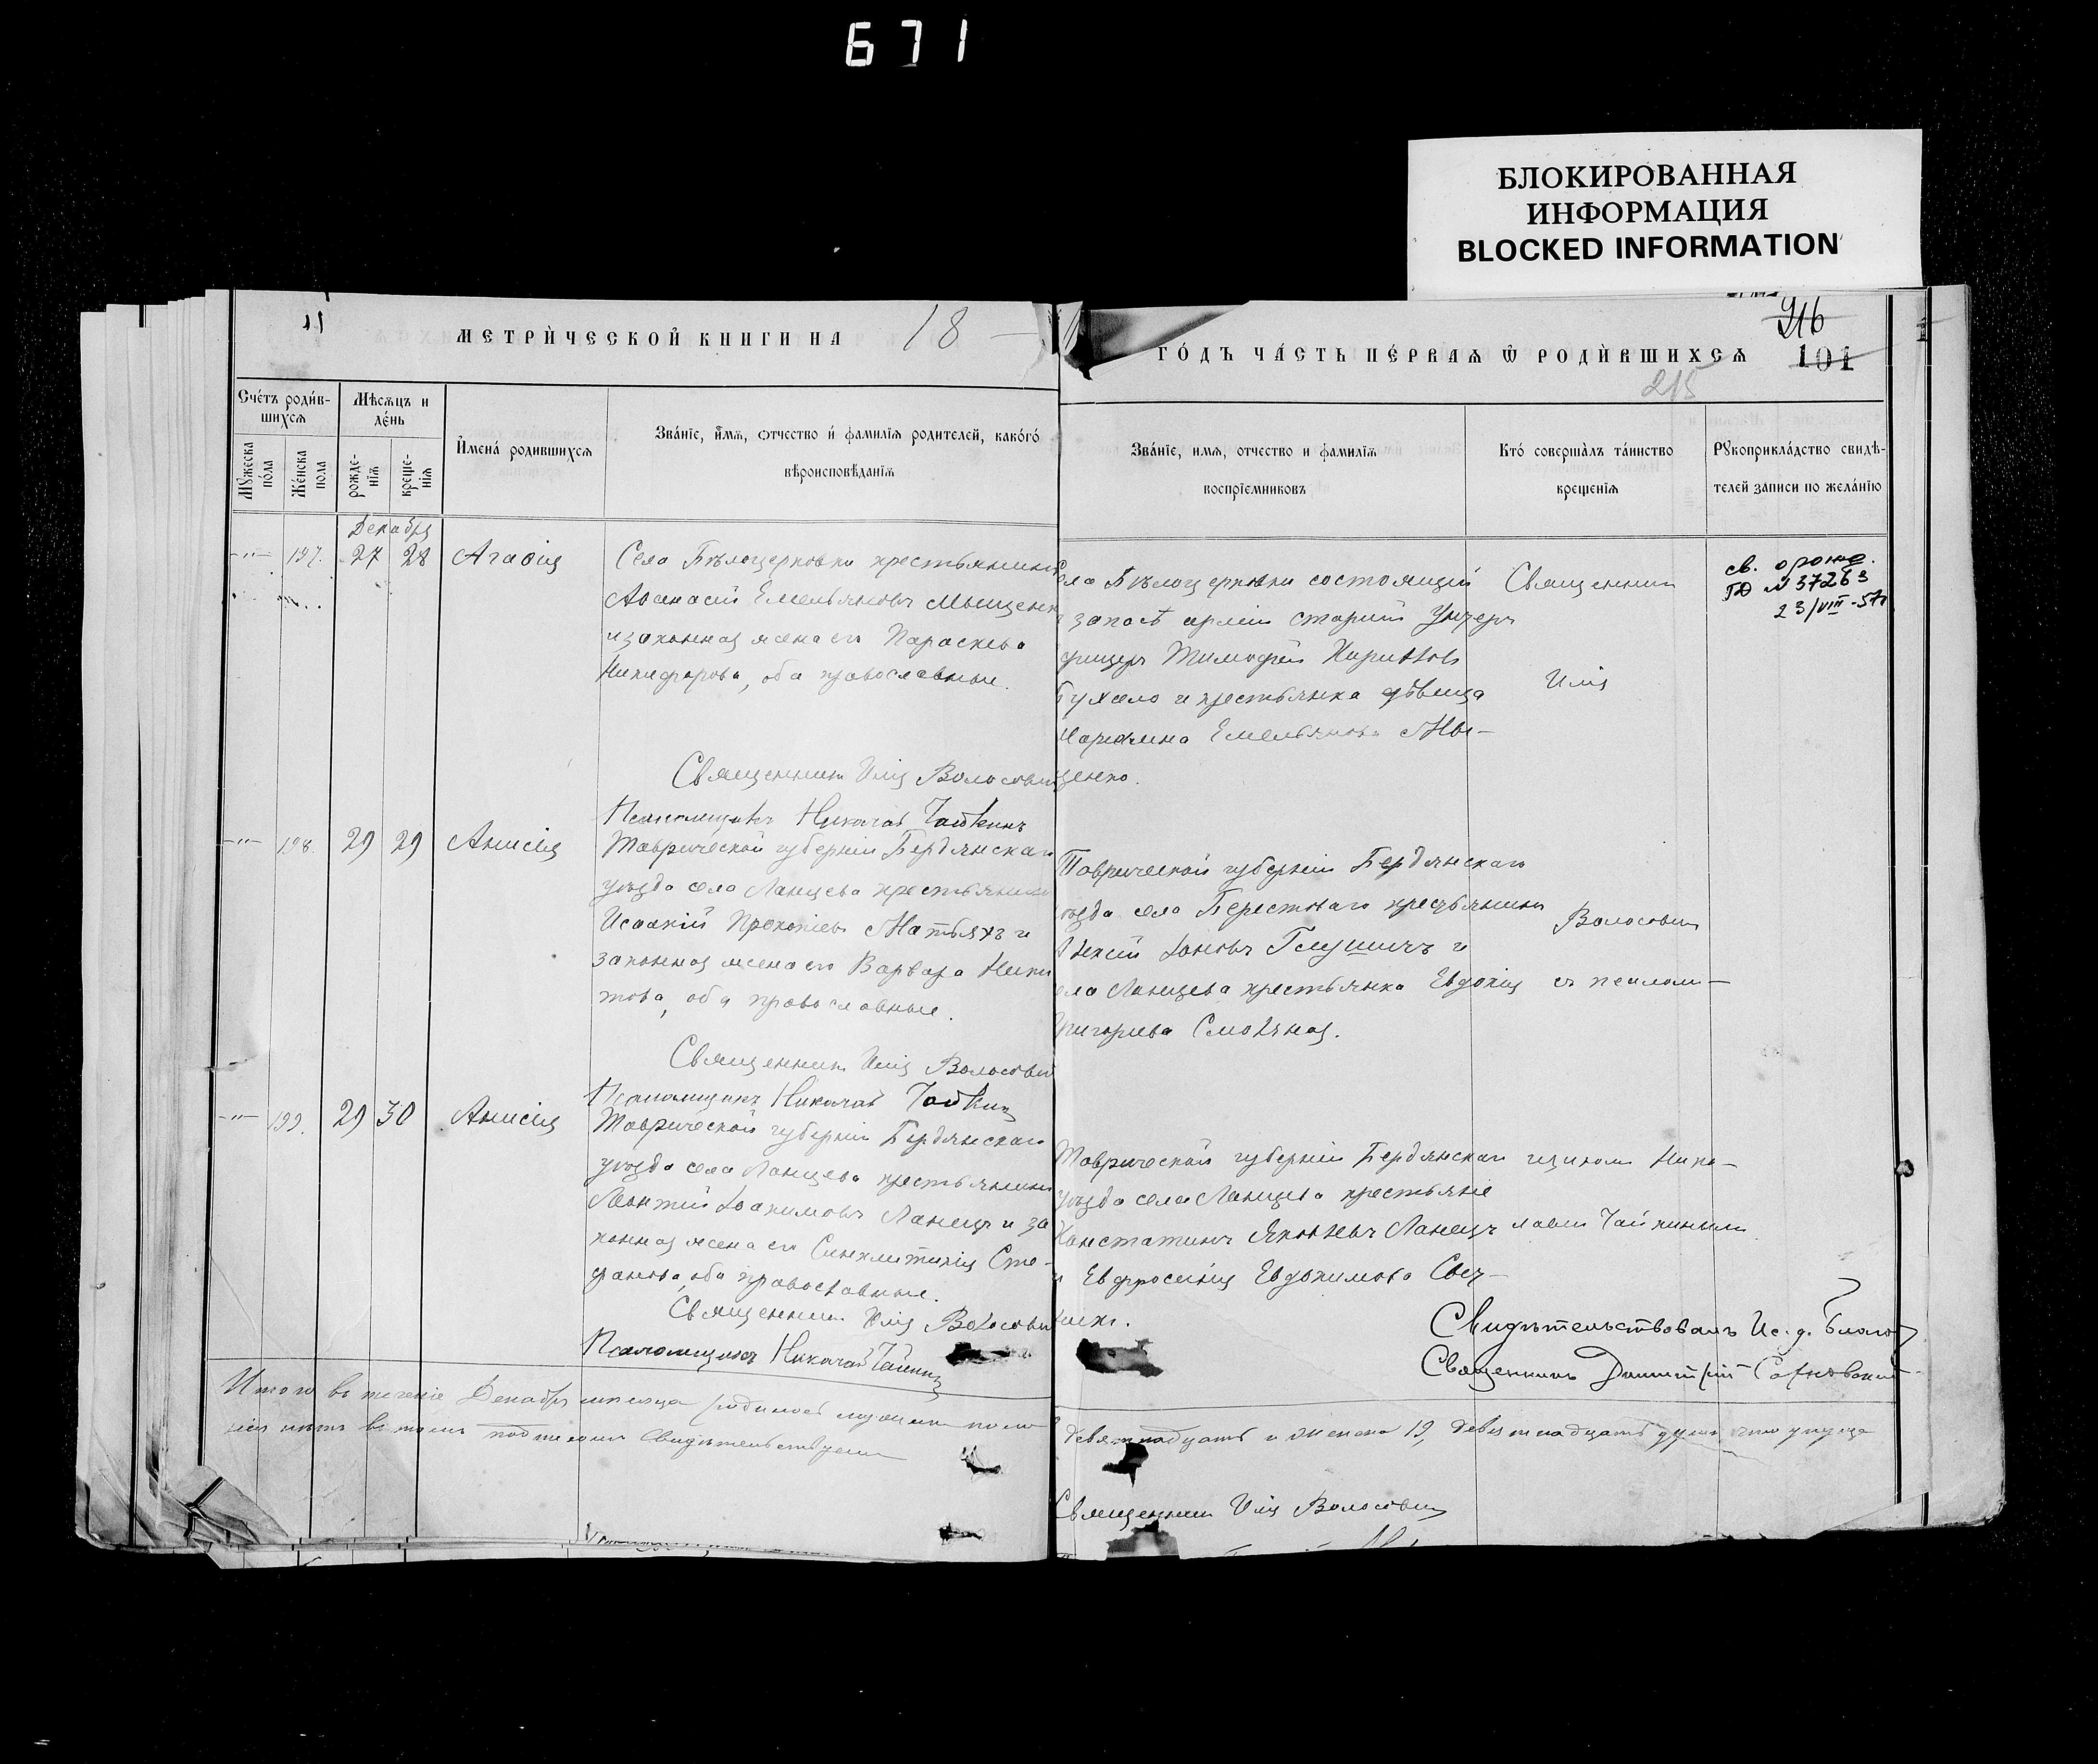 671
БЛОКИРОВАННАЯ
ИНФОРМАЦИЯ
BLOCKED INFORMATION
11
МЕТРИ́ЧЕСКОЙ КНИГИ НА 18
ГО́ДЪ ЧА́СТЬ ПЕ́РВАѦ Ѿ РОДИ́ВШИХСѦ
216
101
215
Сче́тъ роди́в-
шихсѧ
Мѣсѧцъ и
де́нь
Мꙋжеска
по́ла
Же́нска
пола
рожде-
нїѧ
креще-
нїѧ
И҆мена́ родившихсѧ
Зва́нїе, и҆́мѧ, ѻтчество и҆ фамилїѧ родителей, како́гѡ
вѣроисповѣданїѧ
Зва́нїе, имѧ, отчество и фамилїѧ
воспрїемниковъ
Кто́ соверша́лъ та́инство
крещенїѧ
Рꙋкоприкла́дство свидѣ-
телей записи по жела́нїю
Декабрь
-"- 197. 27 28 Агаѳія
Села Бѣлоцерковки крестьянинъ
Аѳанасій Емельяновъ Мыщенк
и законная жена его Параскева
Никифорова, оба православные.
Священникъ Илія Волосович
Псаломщикъ Николай Чайкинъ
села Бѣлоцерковки состоящій
запасѣ арміи старшій Унтеръ
фицеръ Тимофей Харитон
Бухало и крестьянка дѣвица
Марина Емельянова Мы-
щенко.
Священникъ
Илія
св. о рожд.
ГЮ № 37263
23/VIII-57г
-"- 198. 29 29 Анисія
Таврической губерніи Бердянскаго
уѣзда села Ланцева крестьянинъ
Исаакій Прокопіевъ Матьяхъ и
законная жена его Варвара Ники
това, оба православные.
Священникъ Илія Волосович
Псаломщикъ Николай Чайкинъ
Таврической губерніи Бердянскаго
уѣзда села Берестоваго крестьянинъ
Алексій Іоановъ Глушичъ и
села Ланцева крестьянка Евдокія
Григорьева Смоляная.
Волосовичъ
съ псалом-
-"- 199. 29 30 Анисія
Таврической губерніи Бердянскаго
уѣзда села Ланцева крестьянинъ
Леонтій Іоакимовъ Ланецъ и за
конная жена его Синклитикія Сте-
фанова, оба православные.
Священникъ Илія Волосович
Псаломщикъ Николай Чайкинъ
Таврической губерніи Бердянскаго
уѣзда села Ланцева крестьяне
Констатинъ Яковлевъ Ланецъ
и Евфросинія Евдокимова Свеч-
щикомъ Нико-
лаемъ Чайкинымъ
Свидѣтельствовалъ Ис. д. Благоч
Священникъ Димитрій
Итого въ теченіе Декабря мѣсяца родилось мужеска пола
девятнадцать и женска 19, девятнадцать душъ что упуще
нія нѣтъ въ томъ подписомъ свидѣтельствуемъ
Священникъ Илія Волосовичъ